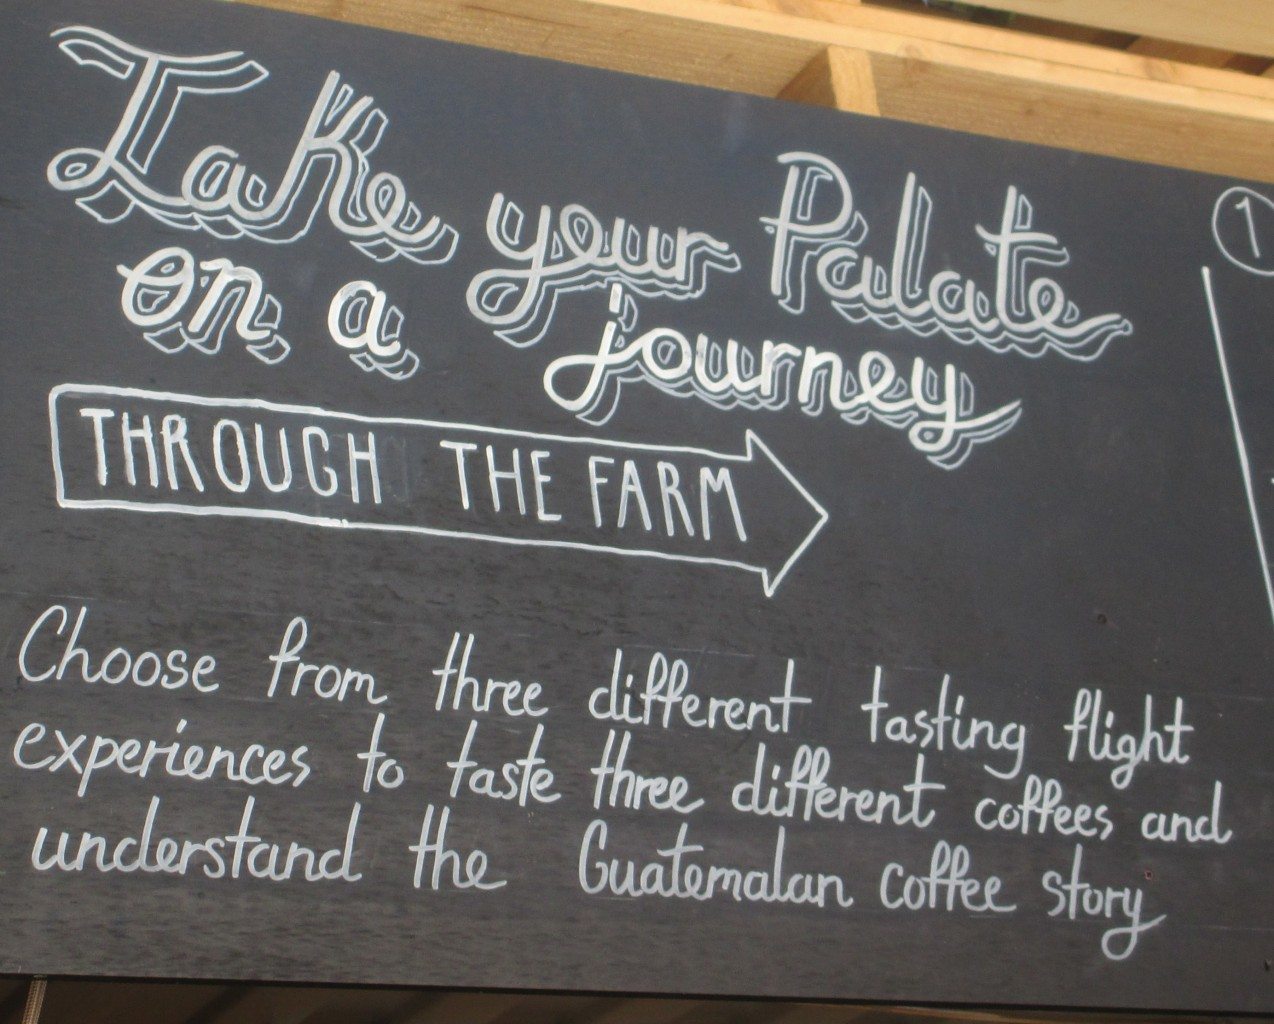 Take your Palate
on a journey
THROUGH THE FARM
Choose from three different tasting flight
experiences to taste three different coffees and
understand the Guatemalan coffee story
1